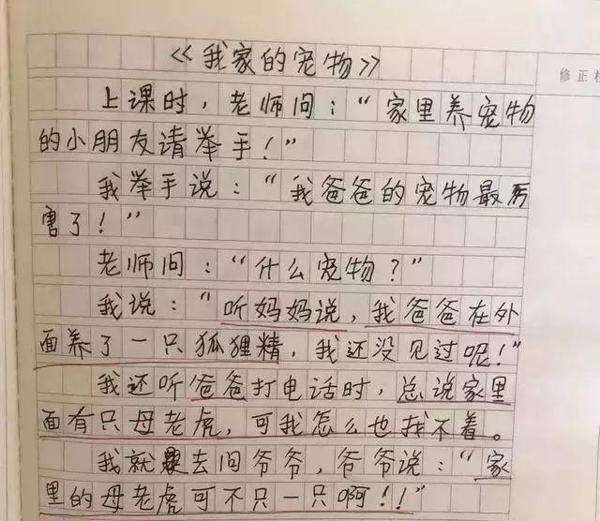 《我家的宠物》
修正栏
上课时，老师问：“家里养宠物
的小朋友请举手！”
我举手说：“我爸爸的宠物最厉
害了！”
老师问：“什么宠物？”
我说：“听妈妈说，我爸爸在外
面养了一只狐狸精，我还没见过呢！”
我还听爸爸打电话时，总说家里
面有只母老虎，可我怎么也找不着。
我就去问爷爷，爷爷说：“家
里的母老虎可不只一只啊！！”